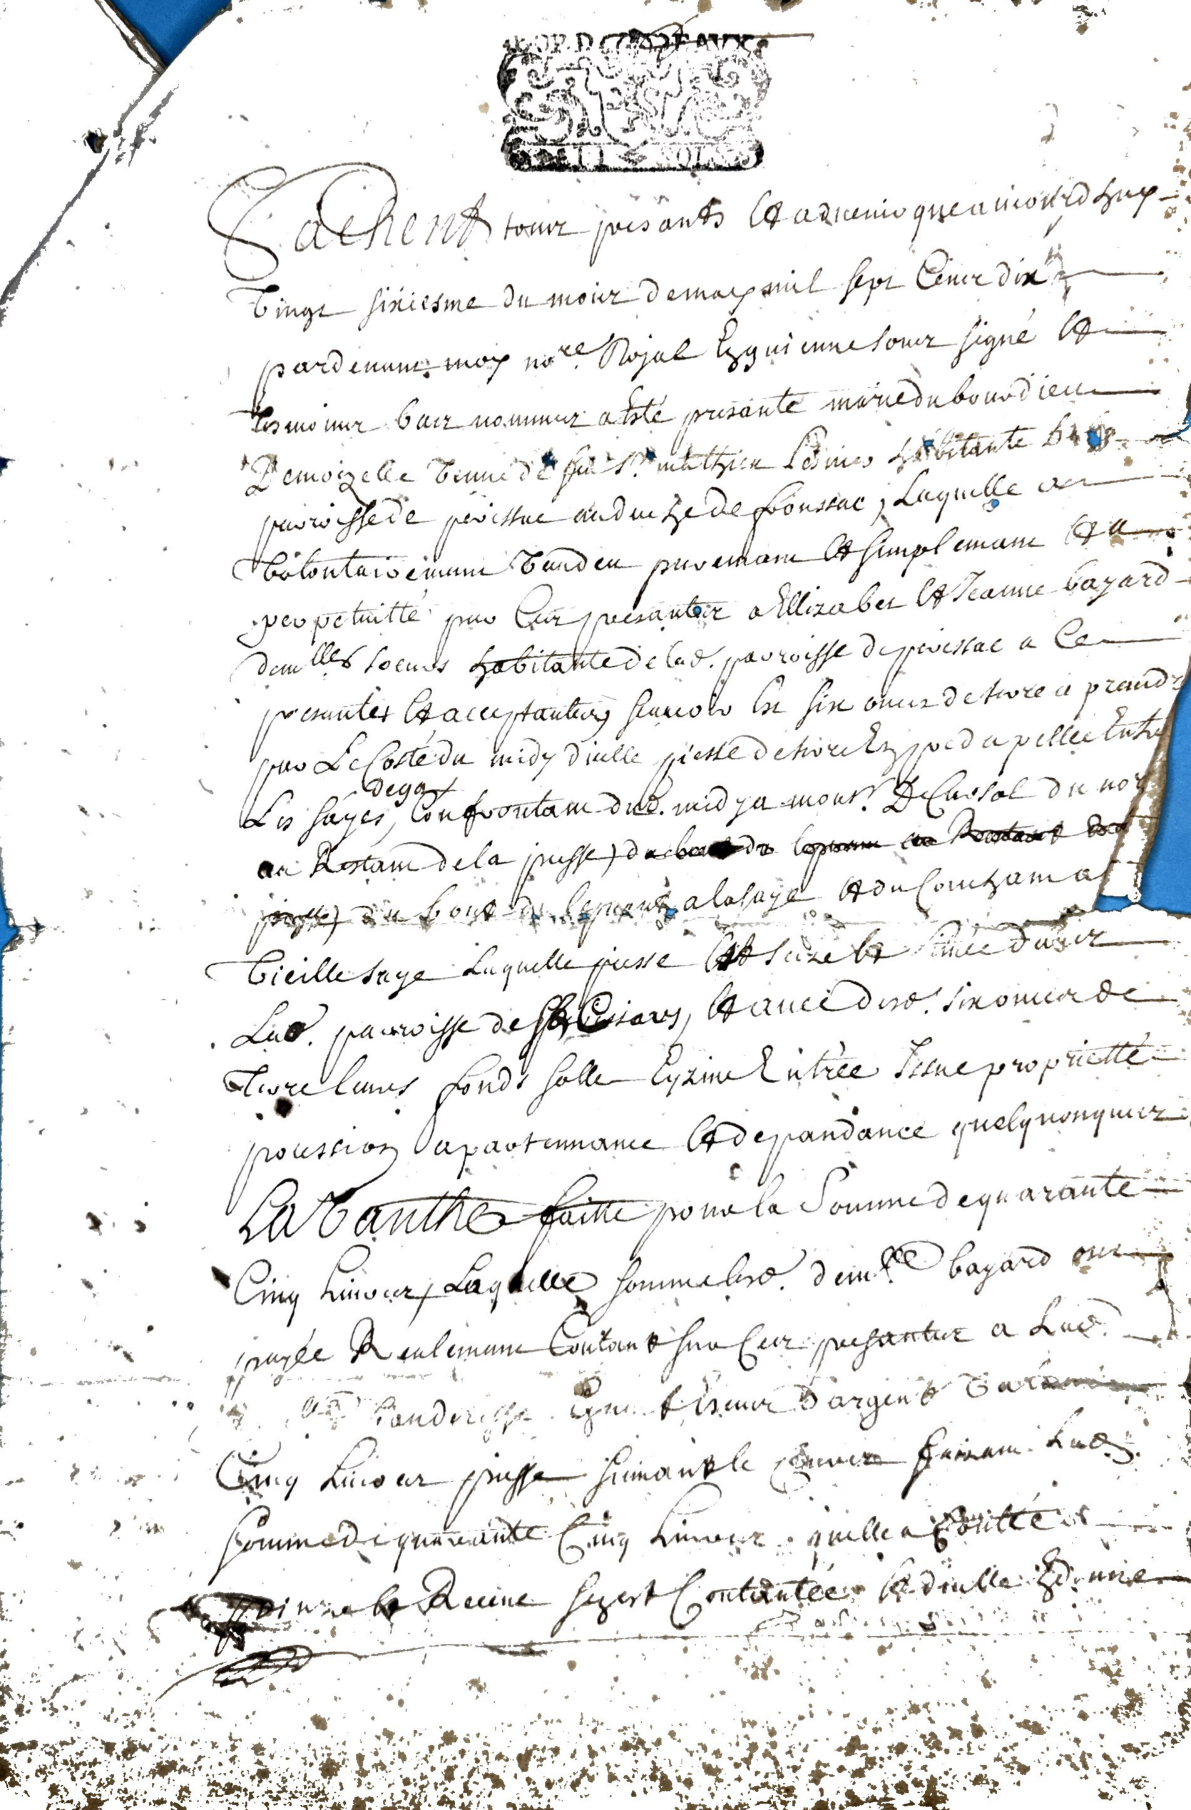 Sachent tous presants et advenir que aujourd huy
vingt sixiesme du mois de may mil sept cens dix
pardevant moy no.re Royal En guienne sous signé et
tesmoins bas nommes a Esté presante marie du bourdieu
Demoizelle veuve de feu S.r mathieu habitante
parroisse de perissac au duché de fronssac, Laquelle a
volontairemant vandeu puremant et simplemant et a
perpetuitté par Ces presantes a Ellizabet et Jeanne bayard
dem.lles soeurs habitante de lad. parroisse de perissac a Ce
presantes et acceptantes, scavoir Est six onces de terre a prandre
par Le Costé du midy d'icelle piesse de terre En appellee Entre
degat
Les hayes, Confrontant dud. midy a mons.r De Cursol du nor
au Restant de la piesse, du Restant
piesse, du bout du levant a la haye et du Couchant a
vieille haye Laquelle piesse Est size et située dans
Lad. parroisse de et avec desd. six onces de
terre leurs fonds Entrée Issue proprietté
possession apartenance et depandance quelquonques
La vanthe faitte pour la Somme de quarante
Cinq Livres, Laquelle somme lesd. dem.lles bayard ont
payée Reelemant Contant sur Ces presantes a Lad.
vanderesse En d'argent
Cinq Livres piesse suivant le Cours faisant Lad.
somme de quarante Cinq Livres quelle a Contée
prinze et Receue sezest Contantée et d'icelle